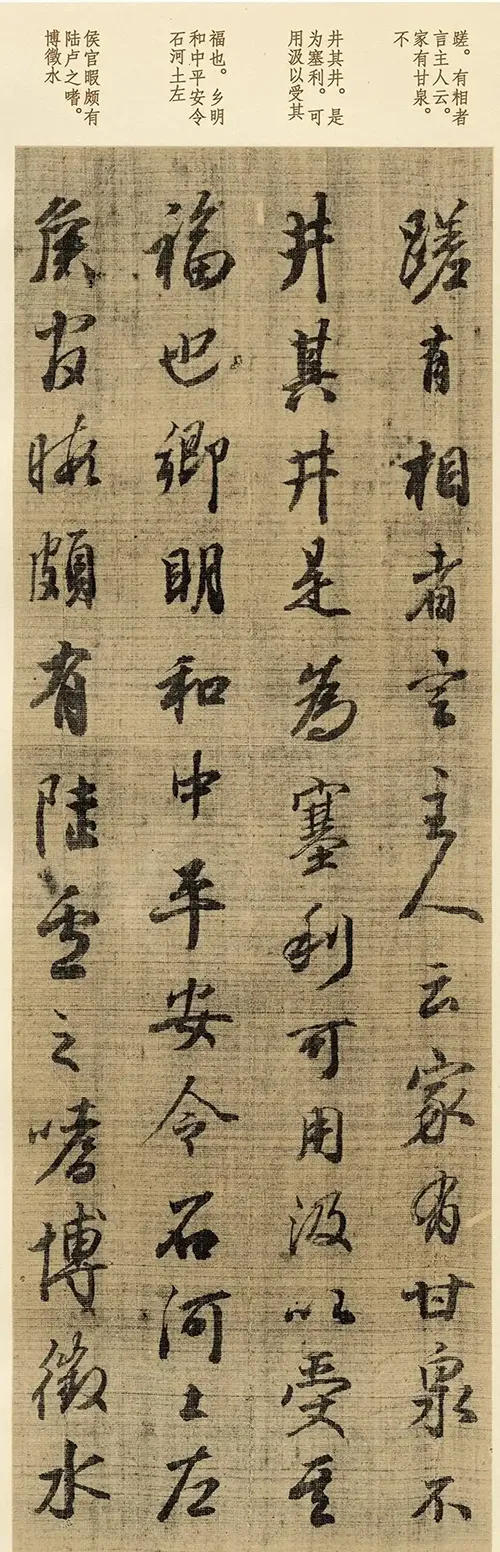 蹉。有相者
言主人云。
家有甘泉。
不
井其井。是
为塞利。可
用汲以受其
福也。乡明
和中平安令
石河土左
侯官暇颇有
陆卢之嗜。
博徵水
蹉有相者言主人云家有甘泉不
井其井是為塞利可用汲以受其
福也鄉明和中平安令石河土左
侯官暇頗有陸盧之嗜博徵水